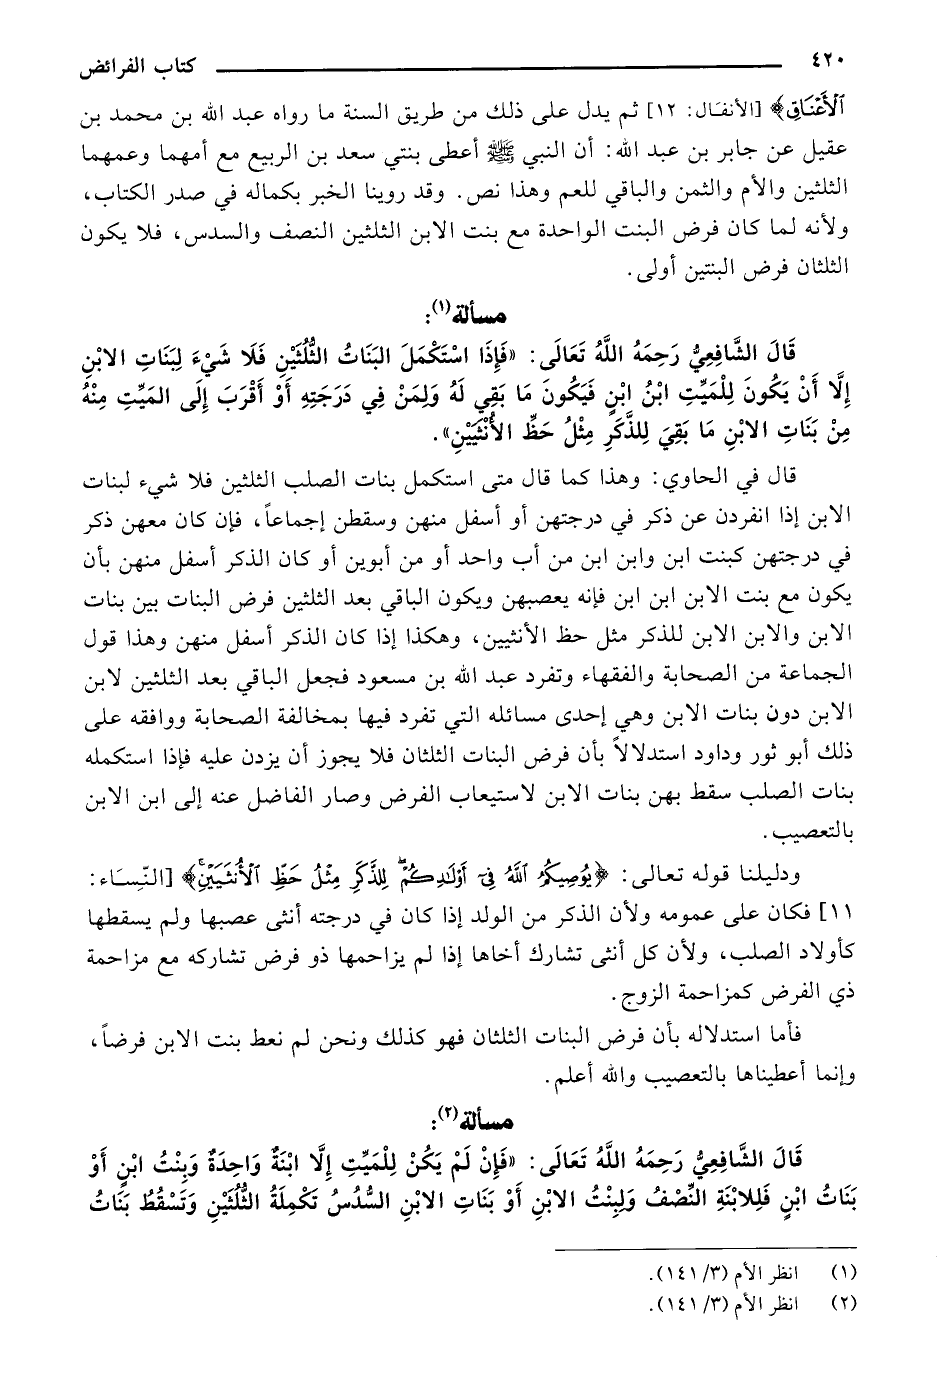 ٤٢٠ كتاب الفرائض
ٱلْأَعْنَاقِ﴾ [الأنفال: ١٢] ثم يدل على ذلك من طريق السنة ما رواه عبد الله بن محمد بن
عقيل عن جابر بن عبد الله: أن النبي ﷺ أعطى بنتي سعد بن الربيع مع أمهما وعمهما
الثلثين والأم والثمن والباقي للعم وهذا نص. وقد روينا الخبر بكماله في صدر الكتاب،
ولأنه لما كان فرض البنت الواحدة مع بنت الابن الثلثين النصف والسدس، فلا يكون
الثلثان فرض البنتين أولى.
مسألة(١):
قَالَ الشَّافِعِيُّ رَحِمَهُ اللَّهُ تَعَالَى: «فَإِذَا اسْتَكْمَلَ البَنَاتُ الثُّلُثَيْنِ فَلَا شَيْءَ لِبَنَاتِ الابْنِ
إِلَّا أَنْ يَكُونَ لِلْمَيِّتِ ابْنُ ابْنٍ فَيَكُونَ مَا بَقِي لَهُ وَلِمَنْ فِي دَرَجَتِهِ أَوْ أَقْرَبَ إِلَى المَيِّتِ مِنْهُ
مِنْ بَنَاتِ الابْنِ مَا بَقِيَ لِلذَّكَرِ مِثْلُ حَظِّ الأُنْثَيَيْنِ».
قال في الحاوي: وهذا كما قال متى استكمل بنات الصلب الثلثين فلا شيء لبنات
الابن إذا انفردن عن ذكر في درجتهن أو أسفل منهن وسقطن إجماعاً، فإن كان معهن ذكر
في درجتهن كبنت ابن وابن ابن من أب واحد أو من أبوين أو كان الذكر أسفل منهن بأن
يكون مع بنت الابن ابن ابن فإنه يعصبهن ويكون الباقي بعد الثلثين فرض البنات بين بنات
الابن والابن الابن للذكر مثل حظ الأنثيين، وهكذا إذا كان الذكر أسفل منهن وهذا قول
الجماعة من الصحابة والفقهاء وتفرد عبد الله بن مسعود فجعل الباقي بعد الثلثين لابن
الابن دون بنات الابن وهي إحدى مسائله التي تفرد فيها بمخالفة الصحابة ووافقه على
ذلك أبو ثور وداود استدلالاً بأن فرض البنات الثلثان فلا يجوز أن يزدن عليه فإذا استكمله
بنات الصلب سقط بهن بنات الابن لاستيعاب الفرض وصار الفاضل عنه إلى ابن الابن
بالتعصيب.
ودليلنا قوله تعالى: ﴿يُوصِيكُمُ ٱللَّهُ فِىٓ أَوْلَـٰدِكُمْ ۖ لِلذَّكَرِ مِثْلُ حَظِّ ٱلْأُنثَيَيْنِ ۚ﴾ [النِّسَاء:
١١] فكان على عمومه ولأن الذكر من الولد إذا كان في درجته أنثى عصبها ولم يسقطها
كأولاد الصلب، ولأن كل أنثى تشارك أخاها إذا لم يزاحمها ذو فرض تشاركه مع مزاحمة
ذي الفرض كمزاحمة الزوج.
فأما استدلاله بأن فرض البنات الثلثان فهو كذلك ونحن لم نعط بنت الابن فرضاً،
وإنما أعطيناها بالتعصيب والله أعلم.
مسألة(٢):
قَالَ الشَّافِعِيُّ رَحِمَهُ اللَّهُ تَعَالَى: «فَإِنْ لَمْ يَكُنْ لِلْمَيِّتِ إِلَّا ابْنَةٌ وَاحِدَةٌ وَبِنْتُ ابْنٍ أَوْ
بَنَاتُ ابْنٍ فَلِلابْنَةِ النِّصْفُ وَلِبِنْتُ الابْنِ أَوْ بَنَاتِ الابْنِ السُّدُسُ تَكْمِلَةُ الثُّلُثَيْنِ وَتَسْقُطُ بَنَاتُ
(١) انظر الأم (٣/ ١٤١).
(٢) انظر الأم (٣/ ١٤١).